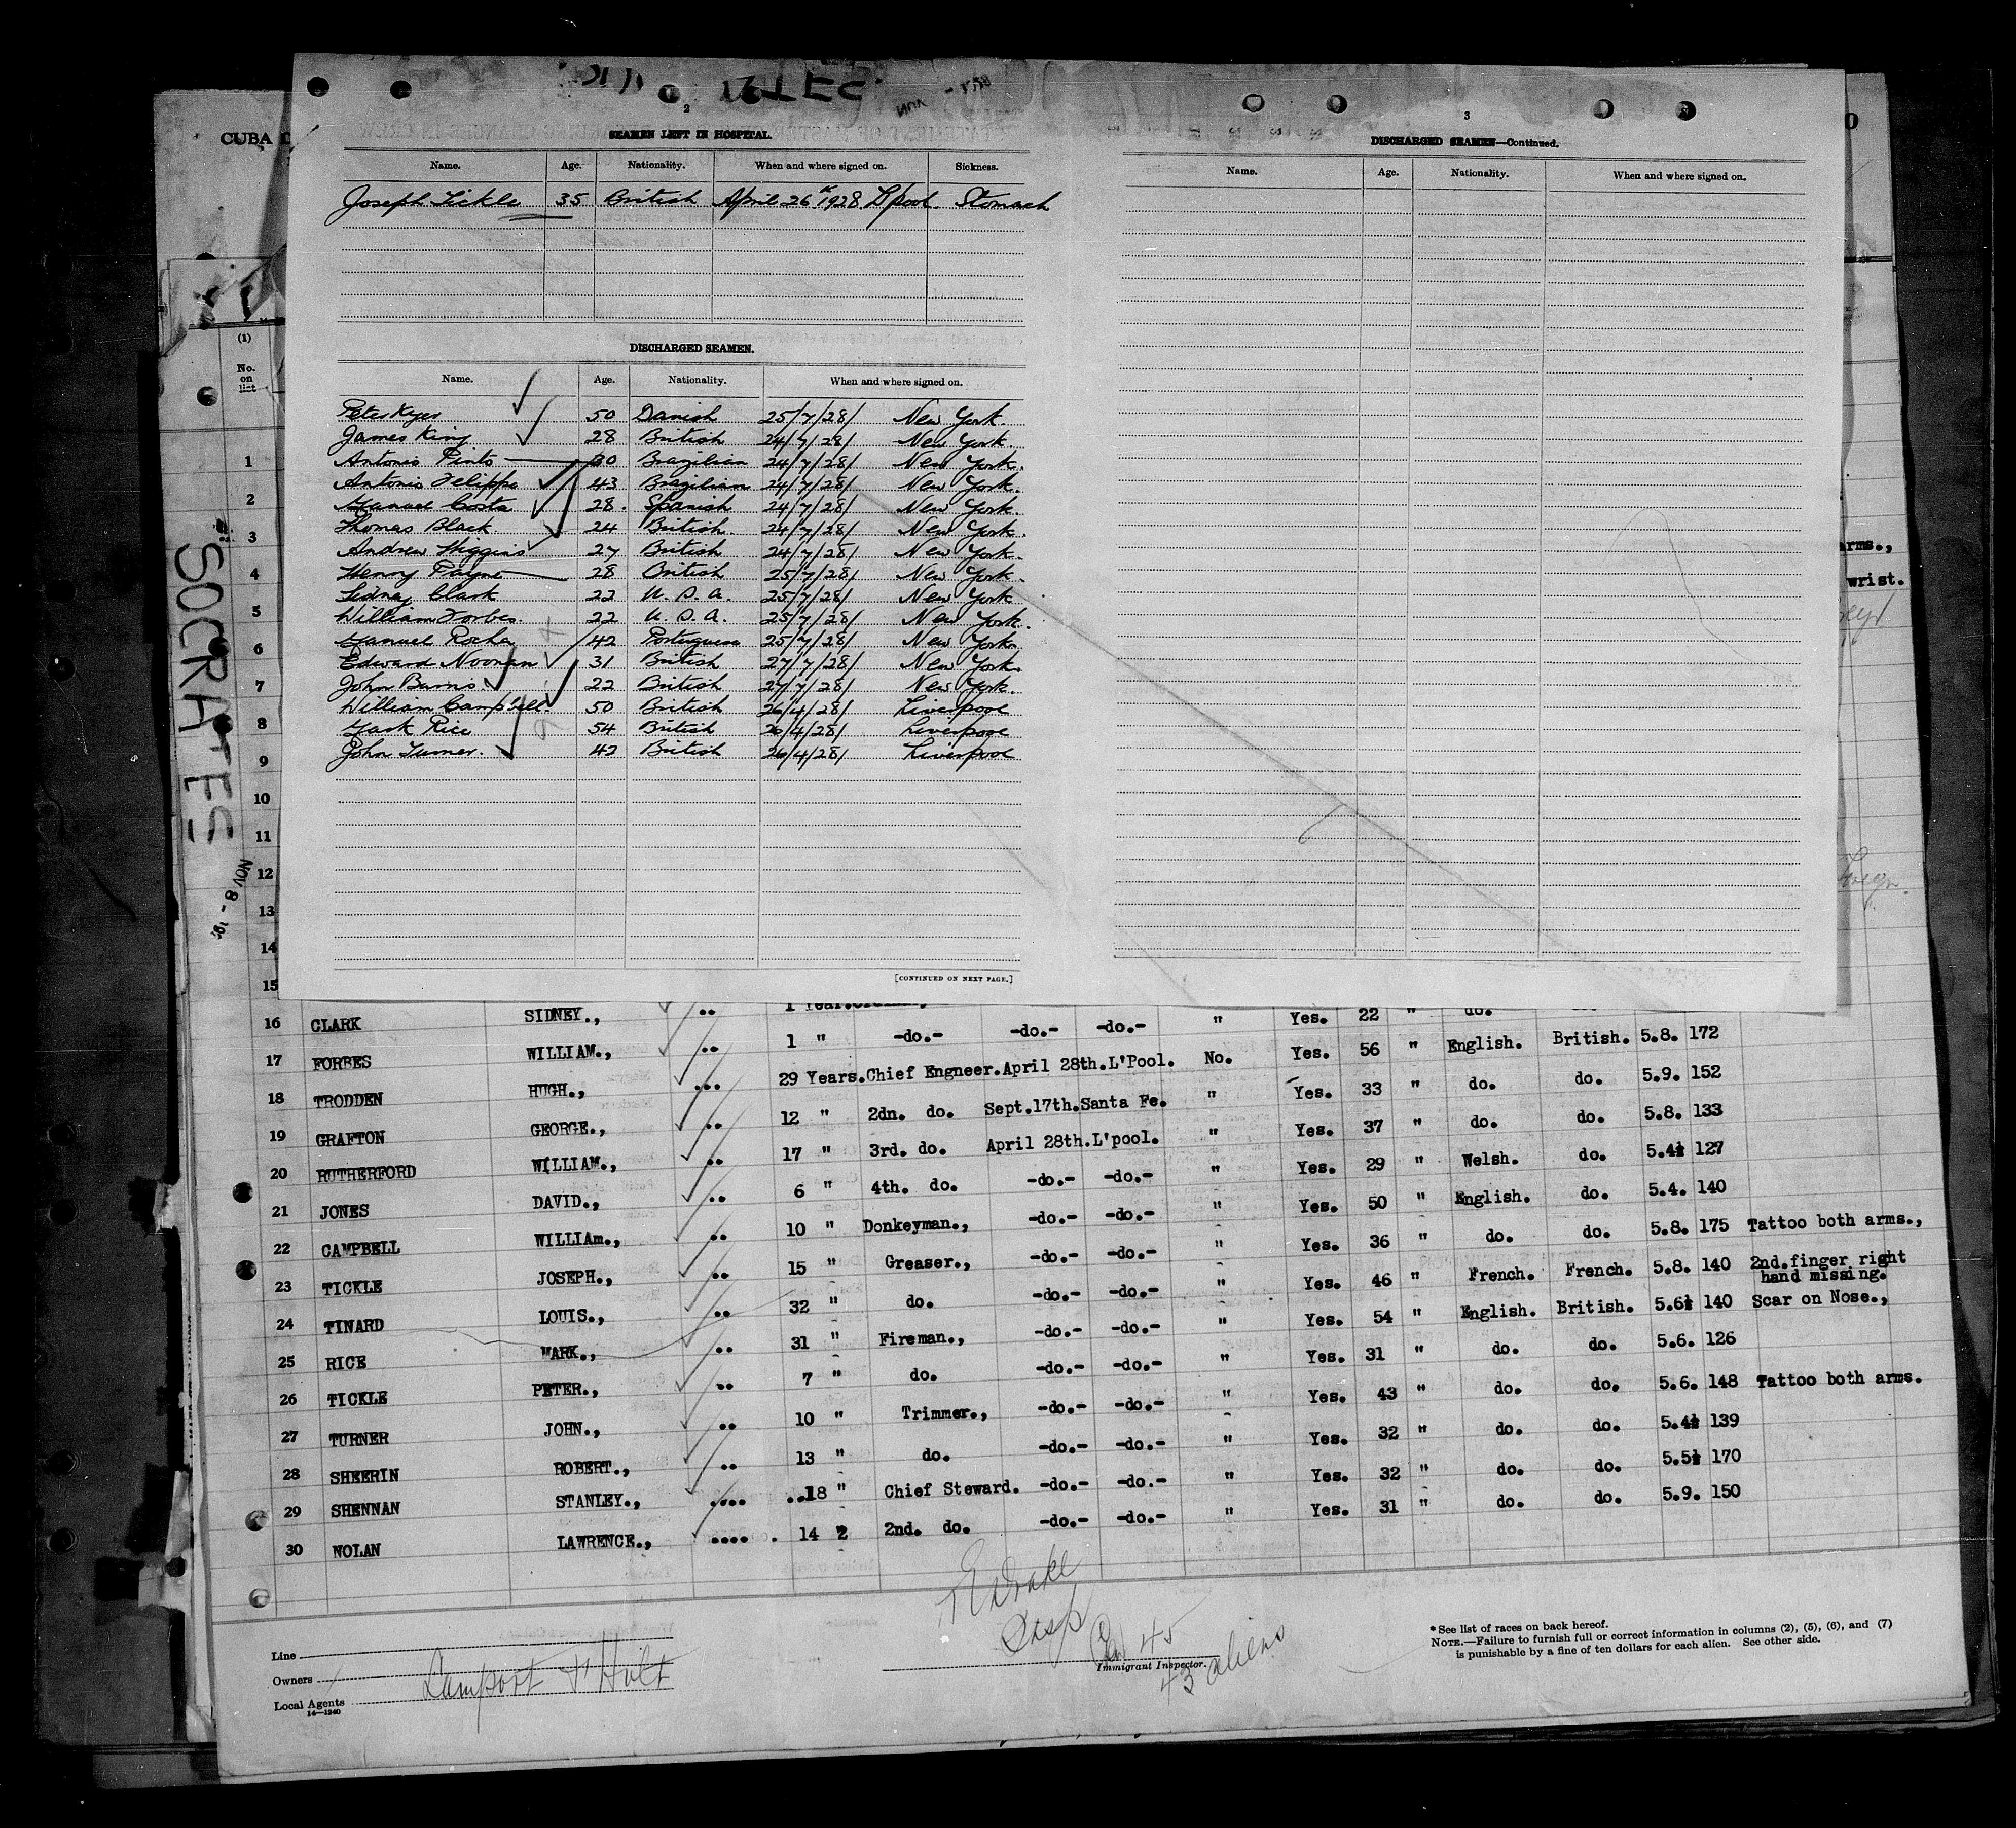 2
SEAMEN LEFT IN HOSPITAL.
Name. Age. Nationality. When and where signed on. Sickness.
Joseph Tickle 35 British April 26th 1928 L'pool. Stomach
DISCHARGED SEAMEN.
Name. Age. Nationality. When and where signed on.
Peter Keyes 50 Danish 25/7/28/ New York.
James King 28 British 24/7/28/ New York.
Antonio Pinto 30 Brazilian 24/7/28/ New York.
Antonio Felippe 43 Brazilian 24/7/28/ New York.
Manuel Costa 28. Spanish 24/7/28/ New York.
Thomas Black. 24 British. 24/7/28/ New York.
Andrew Higgins 27 British 24/7/28/ New York.
Henry Payne 28 British 25/7/28/ New York.
Sidney Clark 22 U.S.A. 25/7/28/ New York
William Forbes. 22 U.S.A. 25/7/28/ New York.
Manuel Rocha 42 Portuguese 25/7/28/ New York.
Edward Noonan 31 British 27/7/28/ New York.
John Burns. 22 British 27/7/28/ New York.
William Campbell. 50 British 26/4/28/ Liverpool
Mark Rice 54 British 26/4/28/ Liverpool
John Turner. 42 British 26/4/28/ Liverpool
[CONTINUED ON NEXT PAGE.]
3
DISCHARGED SEAMEN—Continued.
Name. Age. Nationality. When and where signed on.
CUBA
(1)
No. on list
1
2
3
4
5
6
7
8
9
10
11
12
13
14
15
SOCRATES
NOV 8 -
arms.,
wrist.
16 CLARK SIDNEY., 1 Year.
17 FORBES WILLIAM., 1 " -do.- -do.- -do.- " Yes. 22 " do.
18 TRODDEN HUGH., 29 Years. Chief Engneer. April 28th. L'Pool. No. Yes. 56 " English. British. 5.8. 172
19 GRAFTON GEORGE., 12 " 2dn. do. Sept.17th. Santa Fe. " Yes. 33 " do. do. 5.9. 152
20 RUTHERFORD WILLIAM., 17 " 3rd. do. April 28th. L'pool. " Yes. 37 " do. do. 5.8. 133
21 JONES DAVID., 6 " 4th. do. -do.- -do.- " Yes. 29 " Welsh. do. 5.4½ 127
22 CAMPBELL WILLIAm., 10 " Donkeyman., -do.- -do.- " Yes. 50 " English. do. 5.4. 140
23 TICKLE JOSEPH., 15 " Greaser., -do.- -do.- " Yes. 36 " do. do. 5.8. 175 Tattoo both arms.,
24 TINARD LOUIS., 32 " do. -do.- -do.- " Yes. 46 " French. French. 5.8. 140 2nd.finger right hand missing.
25 RICE MARK., 31 " Fireman., -do.- -do.- " Yes. 54 " English. British. 5.6½ 140 Scar on Nose.,
26 TICKLE PETER., 7 " do. -do.- -do.- " Yes. 31 " do. do. 5.6. 126
27 TURNER JOHN., 10 " Trimmer., -do.- -do.- " Yes. 43 " do. do. 5.6. 148 Tattoo both arms.
28 SHEERIN ROBERT., 13 " do. -do.- -do.- " Yes. 32 " do. do. 5.4½ 139
29 SHENNAN STANLEY., 18 " Chief Steward. -do.- -do.- " Yes. 32 " do. do. 5.5½ 170
30 NOLAN LAWRENCE., 14 2 2nd. do. -do.- -do.- " Yes. 31 " do. do. 5.9. 150
Line
Owners
Local Agents Lamport & Holt
14—1240
Drake
Insp
45
43 aliens
Immigrant Inspector.
*See list of races on back hereof.
NOTE.—Failure to furnish full or correct information in columns (2), (5), (6), and (7)
is punishable by a fine of ten dollars for each alien. See other side.